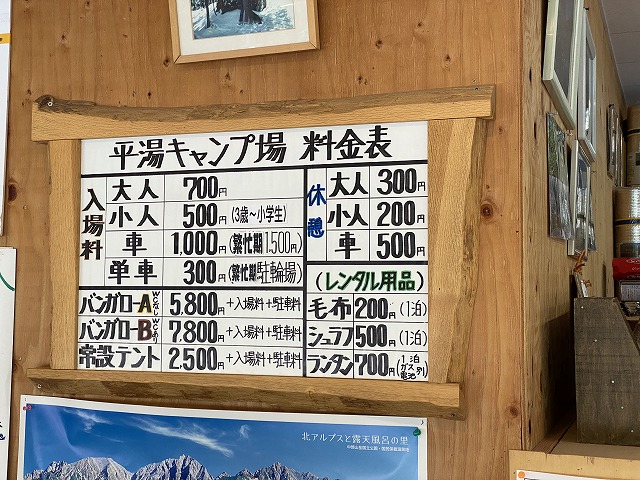 平湯キャンプ場 料金表
入場料
大人 700円
小人 500円 (3歳~小学生)
車 1,000円 (繁忙期1,500円)
単車 300円 (繁忙期駐輪場)
バンガローA WCなし 5,800円 +入場料+駐車料
バンガローB WCあり 7,800円 +入場料+駐車料
常設テント 2,500円 +入場料+駐車料
休憩
大人 300円
小人 200円
車 500円
(レンタル用品)
毛布 200円 (1泊)
シュラフ 500円 (1泊)
ランタン 700円 (1泊 ガス電池別)
北アルプスと露天風呂の里